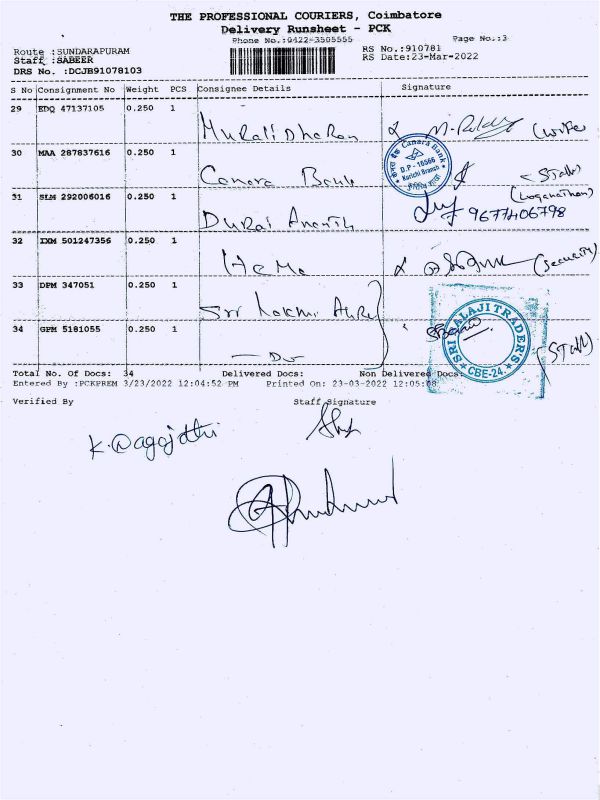 THE PROFESSIONAL COURIERS, Coimbatore
Delivery Runsheet - PCK
Phone No.:0422-3505555 Page No.:3
Route :SUNDARAPURAM RS No.:910781
Staff :SABEER RS Date:23-Mar-2022
DRS No. :DCJB91078103
S No Consignment No Weight PCS Consignee Details Signature
29 EDQ 47137105 0.250 1
Muralidharan (wife
30 MAA 287837616 0.250 1
Canara Bank
Canara Bank
D.P - 16566
Kurichi Branch
(Staff)
31 SLM 292006016 0.250 1
Durai Ananth (Loganathan)
9677406798
32 IXM 501247356 0.250 1
(Security)
33 DPM 347051 0.250 1
Sri
34 GPM 5181055 0.250 1
SRI BALAJI TRADERS
CBE-24.
(Staff)
Total No. Of Docs: 34 Delivered Docs: Non Delivered Docs:
Entered By :PCKPREM 3/23/2022 12:04:52 PM Printed On: 23-03-2022 12:05:08
Verified By Staff Signature